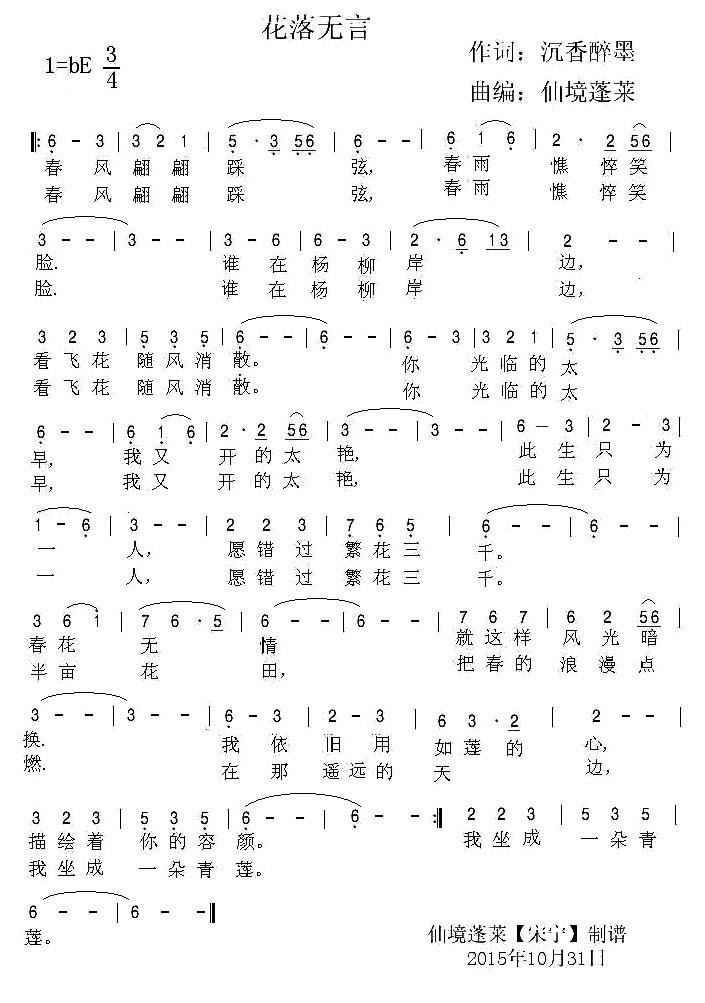 花落无言
1=bE 3/4
作词：沉香醉墨
曲编：仙境蓬莱
6 - 3 | 3 2 1 | 5 · 3 56 | 6 - - | 6 1 6 | 2 · 2 56 |
春 风 翩 翩 踩 弦, 春 雨 憔 悴 笑
春 风 翩 翩 踩 弦, 春 雨 憔 悴 笑
3 - - | 3 - - | 3 - 6 | 6 - 3 | 2 · 6 13 | 2 - - |
脸. 谁 在 杨 柳 岸 边,
脸. 谁 在 杨 柳 岸 边,
3 2 3 | 5 3 5 | 6 - - | 6 - - | 6 - 3 | 3 2 1 | 5 · 3 56 |
看 飞 花 随 风 消 散。 你 光 临 的 太
看 飞 花 随 风 消 散。 你 光 临 的 太
6 - - | 6 1 6 | 2 · 2 56 | 3 - - | 3 - - | 6 - 3 | 2 - 3 |
早, 我 又 开 的 太 艳, 此 生 只 为
早, 我 又 开 的 太 艳, 此 生 只 为
1 - 6 | 3 - - | 2 2 3 | 7 6 5 | 6 - - | 6 - |
一 人, 愿 错 过 繁 花 三 千。
一 人, 愿 错 过 繁 花 三 千。
3 6 1 | 7 6 · 5 | 6 - - | 6 - - | 7 6 7 | 6 2 56 |
春 花 无 情 就 这 样 风 光 暗
半 亩 花 田, 把 春 的 浪 漫 点
3 - - | 3 - - | 6 - 3 | 2 - 3 | 6 3 · 2 | 2 - - |
换. 我 依 旧 用 如 莲 的 心,
燃. 在 那 遥 远 的 天 边,
3 2 3 | 5 3 5 | 6 - - | 6 - :| 2 2 3 | 5 3 5 |
描 绘 着 你 的 容 颜。 我 坐 成 一 朵 青
我 坐 成 一 朵 青 莲。
6 - - | 6 - - |
莲。
仙境蓬莱【宋宁】制谱
2015年10月31日